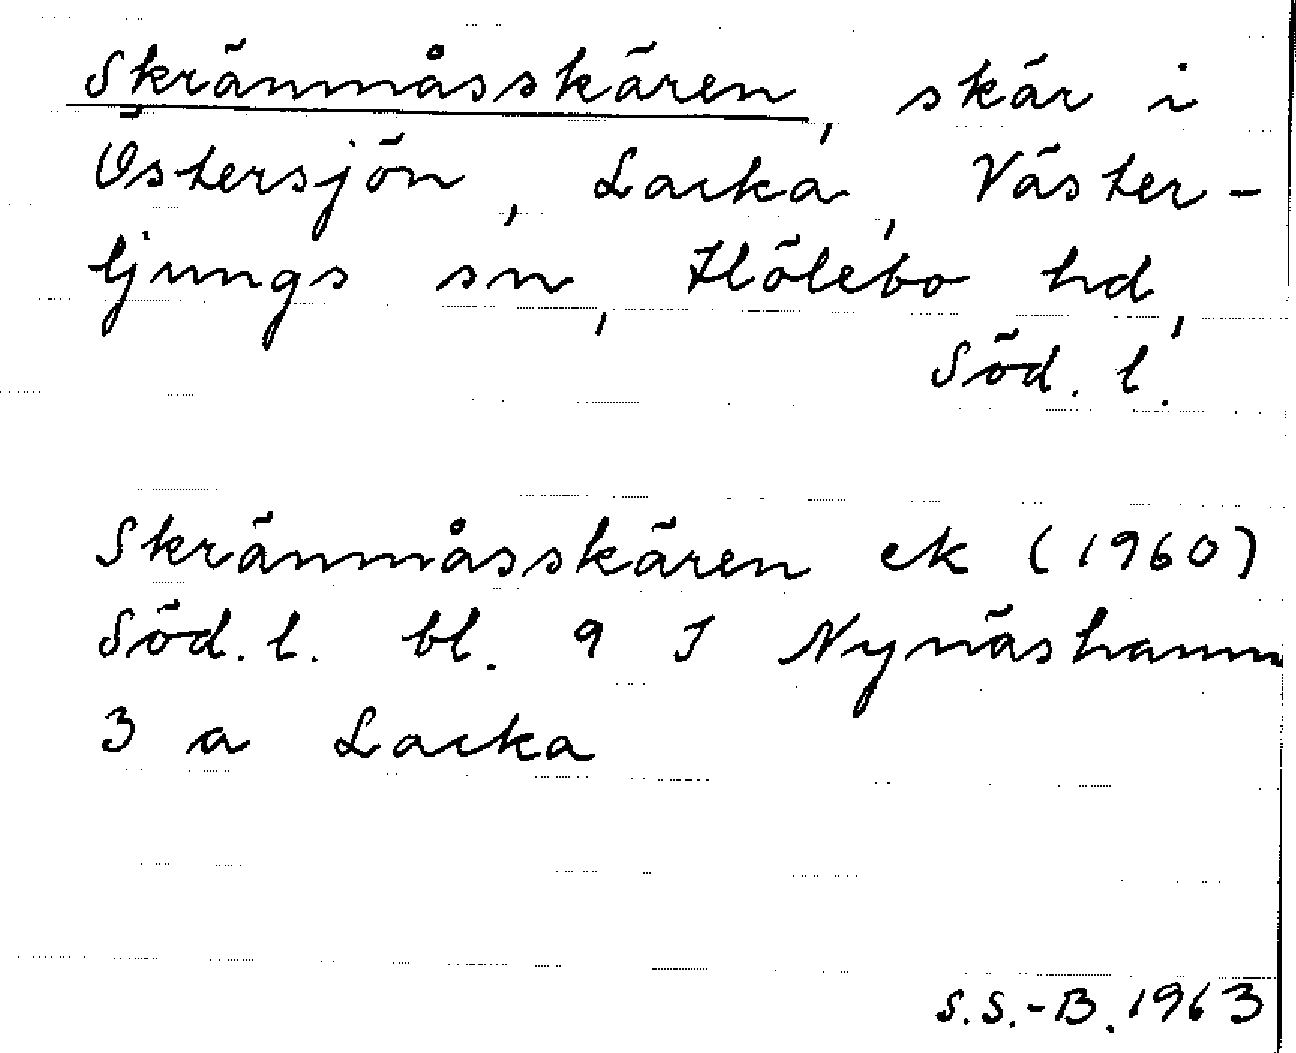 Skränmåsskären, skär i
Östersjön, Lacka, Väster-
ljungs sn, Hölebo hd,
Söd. l.
Skränmåsskären ek (1960)
Söd. l. bl. 9 J Nynäshamn
3 a Lacka
S.S.-B. 1963